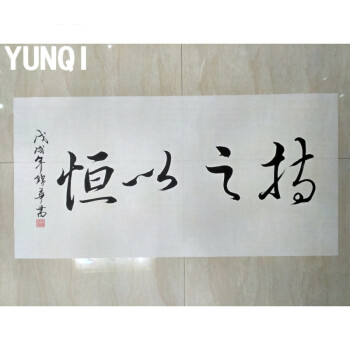 YUNQI
持之以恒
戊戌年